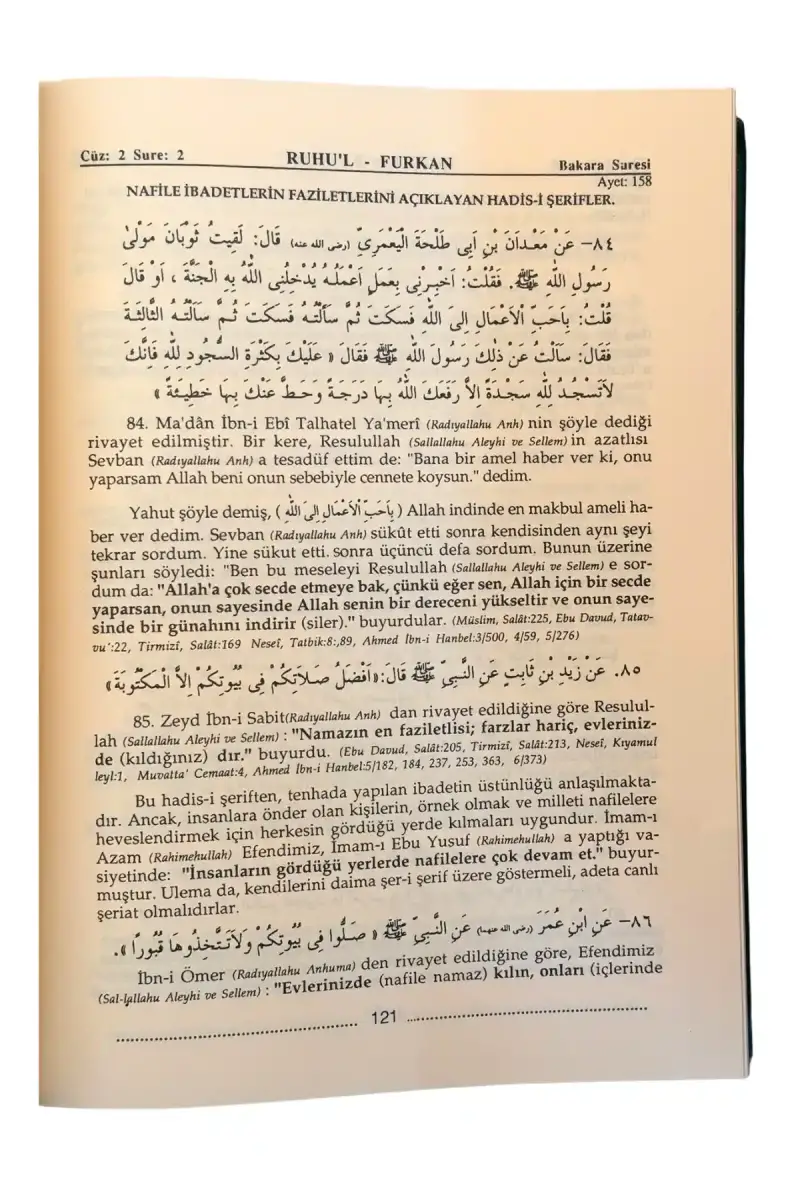 Cüz: 2 Sure: 2
RUHU'L - FURKAN
Bakara Suresi
Ayet: 158
NAFİLE İBADETLERİN FAZİLETLERİNİ AÇIKLAYAN HADİS-İ ŞERİFLER.
٨٤– عَنْ مَعْدَانَ بْنِ اَبِى طَلْحَةَ الْيَعْمَرِىِّ (رضى الله عنه) قَالَ: لَقِيتُ ثَوْبَانَ مَوْلَى
رَسُولِ اللّٰهِ ﷺ. فَقُلْتُ: اَخْبِرْنِى بِعَمَلٍ اَعْمَلُهُ يُدْخِلُنِى اللّٰهُ بِهِ الْجَنَّةَ ، اَوْ قَالَ
قُلْتُ: بِاَحَبِّ الْاَعْمَالِ اِلَى اللّٰهِ فَسَكَتَ ثُمَّ سَاَلْتُهُ فَسَكَتَ ثُمَّ سَاَلْتُهُ الثَّالِثَةَ
فَقَالَ: سَاَلْتُ عَنْ ذٰلِكَ رَسُولَ اللّٰهِ ﷺ فَقَالَ « عَلَيْكَ بِكَثْرَةِ السُّجُودِ لِلّٰهِ فَاِنَّكَ
لَاتَسْجُدُ لِلّٰهِ سَجْدَةً اِلاَّ رَفَعَكَ اللّٰهُ بِهَا دَرَجَةً وَحَطَّ عَنْكَ بِهَا خَطِيئَةً »
84. Ma'dân İbn-i Ebî Talhatel Ya'merî (Radıyallahu Anh) nin şöyle dediği
rivayet edilmiştir. Bir kere, Resulullah (Sallallahu Aleyhi ve Sellem) in azatlısı
Sevban (Radıyallahu Anh) a tesadüf ettim de: "Bana bir amel haber ver ki, onu
yaparsam Allah beni onun sebebiyle cennete koysun." dedim.
Yahut şöyle demiş, ( بِاَحَبِّ الْاَعْمَالِ اِلَى اللّٰهِ ) Allah indinde en makbul ameli ha-
ber ver dedim. Sevban (Radıyallahu Anh) sükût etti sonra kendisinden aynı şeyi
tekrar sordum. Yine sükut etti. sonra üçüncü defa sordum. Bunun üzerine
şunları söyledi: "Ben bu meseleyi Resulullah (Sallallahu Aleyhi ve Sellem) e sor-
dum da: "Allah'a çok secde etmeye bak, çünkü eğer sen, Allah için bir secde
yaparsan, onun sayesinde Allah senin bir dereceni yükseltir ve onun saye-
sinde bir günahını indirir (siler)." buyurdular. (Müslim, Salât:225, Ebu Davud, Tatav-
vu':22, Tirmizî, Salât:169 Neseî, Tatbik:8:,89, Ahmed İbn-i Hanbel:3/500, 4/59, 5/276)
٨٥. عَنْ زَيْدِ بْنِ ثَابِتٍ عَنِ النَّبِىِّ ﷺ قَالَ:«اَفْضَلُ صَلَاتِكُمْ فِى بُيُوتِكُمْ اِلاَّ الْمَكْتُوبَةَ»
85. Zeyd İbn-i Sabit(Radıyallahu Anh) dan rivayet edildiğine göre Resulul-
lah (Sallallahu Aleyhi ve Sellem) : "Namazın en faziletlisi; farzlar hariç, evleriniz-
de (kıldığınız) dır." buyurdu. (Ebu Davud, Salât:205, Tirmizî, Salât:213, Neseî, Kıyamul
leyl:1, Muvatta' Cemaat:4, Ahmed İbn-i Hanbel:5/182, 184, 237, 253, 363, 6/373)
Bu hadis-i şeriften, tenhada yapılan ibadetin üstünlüğü anlaşılmakta-
dır. Ancak, insanlara önder olan kişilerin, örnek olmak ve milleti nafilelere
heveslendirmek için herkesin gördüğü yerde kılmaları uygundur. İmam-ı
Azam (Rahimehullah) Efendimiz, İmam-ı Ebu Yusuf (Rahimehullah) a yaptığı va-
siyetinde: "İnsanların gördüğü yerlerde nafilelere çok devam et." buyur-
muştur. Ulema da, kendilerini daima şer-i şerif üzere göstermeli, adeta canlı
şeriat olmalıdırlar.
٨٦– عَنِ ابْنِ عُمَرَ (رضى الله عنهما) عَنِ النَّبِىِّ ﷺ « صَلُّوا فِى بُيُوتِكُمْ وَلَاتَتَّخِذُوهَا قُبُورًا ».
İbn-i Ömer (Radıyallahu Anhuma) den rivayet edildiğine göre, Efendimiz
(Sal-lallahu Aleyhi ve Sellem) : "Evlerinizde (nafile namaz) kılın, onları (içlerinde
121